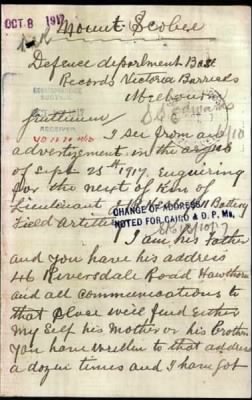 OCT 8 1917
Mount Scobee
Defence department Base
Records Victoria Barracks
Melbourne
Gentlemen
RECEIVED
I see from an
advertizement in the argus
of Sept 25th 1917. Enquiring
for the next of Kin of
Lieutenant Battery
Field Artillery
CHANGE OF ADDRESS
NOTED FOR CAIRO & D.P. Ms.
I am his Father
and you have his address
46 Riversdale Road Hawthorn
and all communications to
that place will find Either
My Self his Mother or his Brother
You have written to that address
a dozen times and I have got